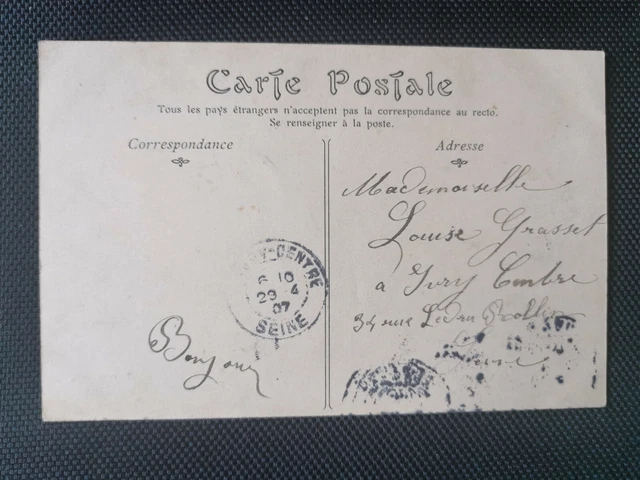 Carte Postale
Tous les pays étrangers n'acceptent pas la correspondance au recto.
Se renseigner à la poste.
Correspondance
Adresse
Mademoiselle
Louise Grasset
à Ivry Centre
34 rue Ledru Rollin
Seine
RY-CENTRE
6 10
29 4
07
SEINE
Bonjour